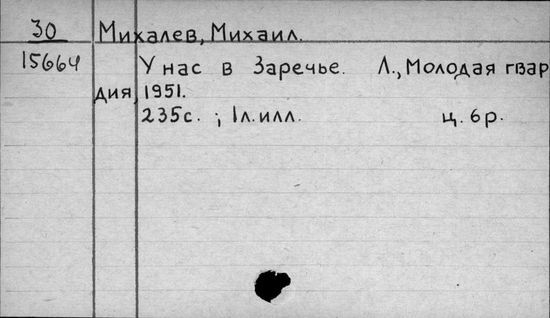 30 Михалев, Михаил.
15664 У нас в Заречье. Л., Молодая гвар
дия, 1951.
235с. ; 1л.илл. ц. 6р.